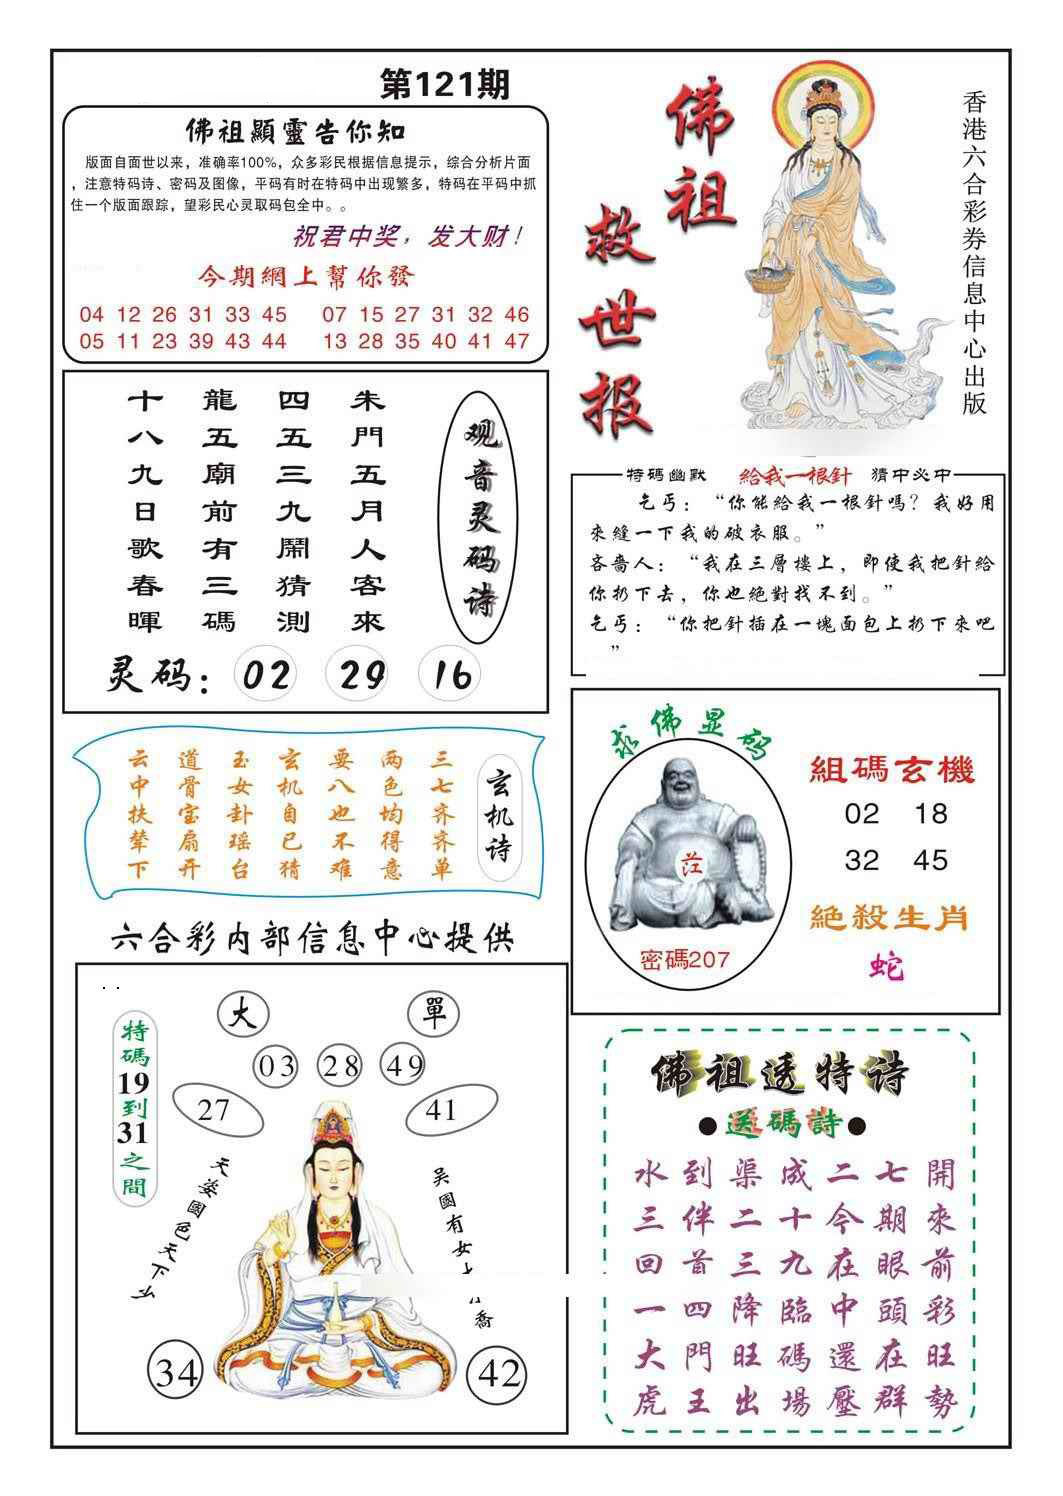 第121期
佛祖顯靈告你知
版面自面世以来，准确率100%，众多彩民根据信息提示，综合分析片面
，注意特码诗、密码及图像，平码有时在特码中出现繁多，特码在平码中抓
住一个版面跟踪，望彩民心灵取码包全中。。
祝君中奖，发大财！
今期網上幫你發
04 12 26 31 33 45 07 15 27 31 32 46
05 11 23 39 43 44 13 28 35 40 41 47
佛祖
救世报
香港六合彩券信息中心出版
观音灵码诗
朱門五月人客來
四五三九鬧猜測
龍五廟前有三碼
十八九日歌春暉
灵码：02 29 16
特碼幽默 給我一根針 猜中必中
乞丐：“你能給我一根針嗎？我好用
來縫一下我的破衣服。”
吝嗇人：“我在三層樓上，即使我把針給
你扔下去，你也絕對找不到。”
乞丐：“你把針插在一塊面包上扔下來吧
”
玄机诗
三七齐齐单
两色均得意
要八也不难
玄机自已猜
玉女卦瑶台
道骨宝扇开
云中扶辇下
求佛显码
密碼207
組碼玄機
02 18
32 45
絕殺生肖
蛇
六合彩内部信息中心提供
特碼19到31之間
大 單
03 28 49
27 41
天姿國色天下
吳國有女
喬
34 42
佛祖透特诗
●送碼詩●
水到渠成二七開
三伴二十今期來
回首三九在眼前
一四降臨中頭彩
大門旺碼還在旺
虎王出場壓群勢